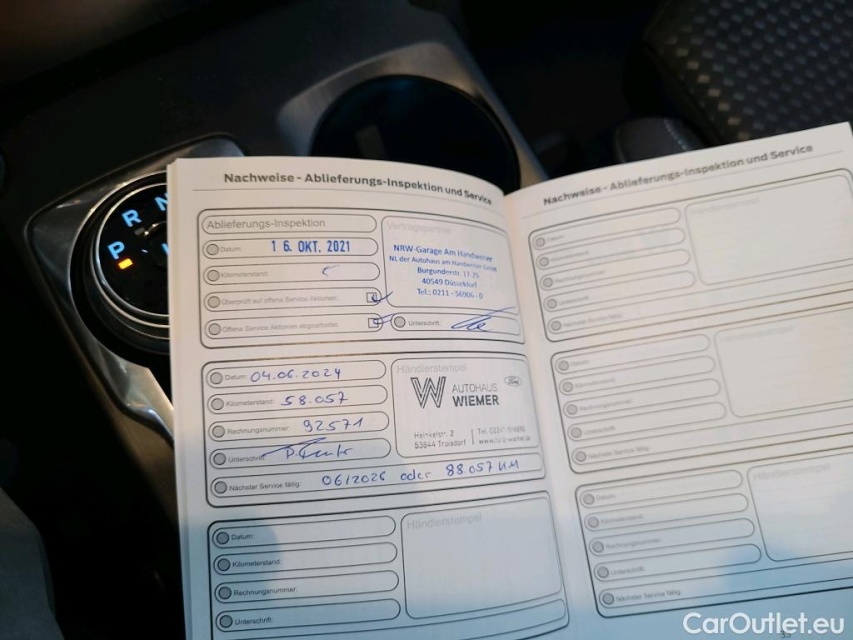 R N
P
Nachweise - Ablieferungs-Inspektion und Service
Ablieferungs-Inspektion
Datum: 16. OKT. 2021
Kilometerstand:
Überprüft auf offene Service Aktionen:
Offene Service Aktionen abgearbeitet:
Vertragspartner
NRW-Garage Am Handweiser
NL der Autohaus am Handweiser GmbH
Burgunderstr. 17-25
40549 Düsseldorf
Tel.: 0211 - 56906 - 0
Unterschrift:
Datum: 04.06.2024
Kilometerstand: 58.057
Rechnungsnummer: 92571
Unterschrift:
Händlerstempel
W AUTOHAUS
WIEMER
Ford
Heinkelstr. 2
53844 Troisdorf
Nächster Service fällig: 06/2026 oder 88.057 KM
Datum:
Kilometerstand:
Rechnungsnummer:
Unterschrift:
Händlerstempel
Nachweise - Ablieferungs-Inspektion und Service
Datum:
Kilometerstand:
Rechnungsnummer:
Unterschrift:
Nächster Service fällig:
Händlerstempel
Datum:
Kilometerstand:
Rechnungsnummer:
Unterschrift:
Nächster Service fällig:
Händlerstempel
Datum:
Kilometerstand:
Rechnungsnummer:
Unterschrift:
Nächster Service fällig:
Händlerstempel
CarOutlet.eu